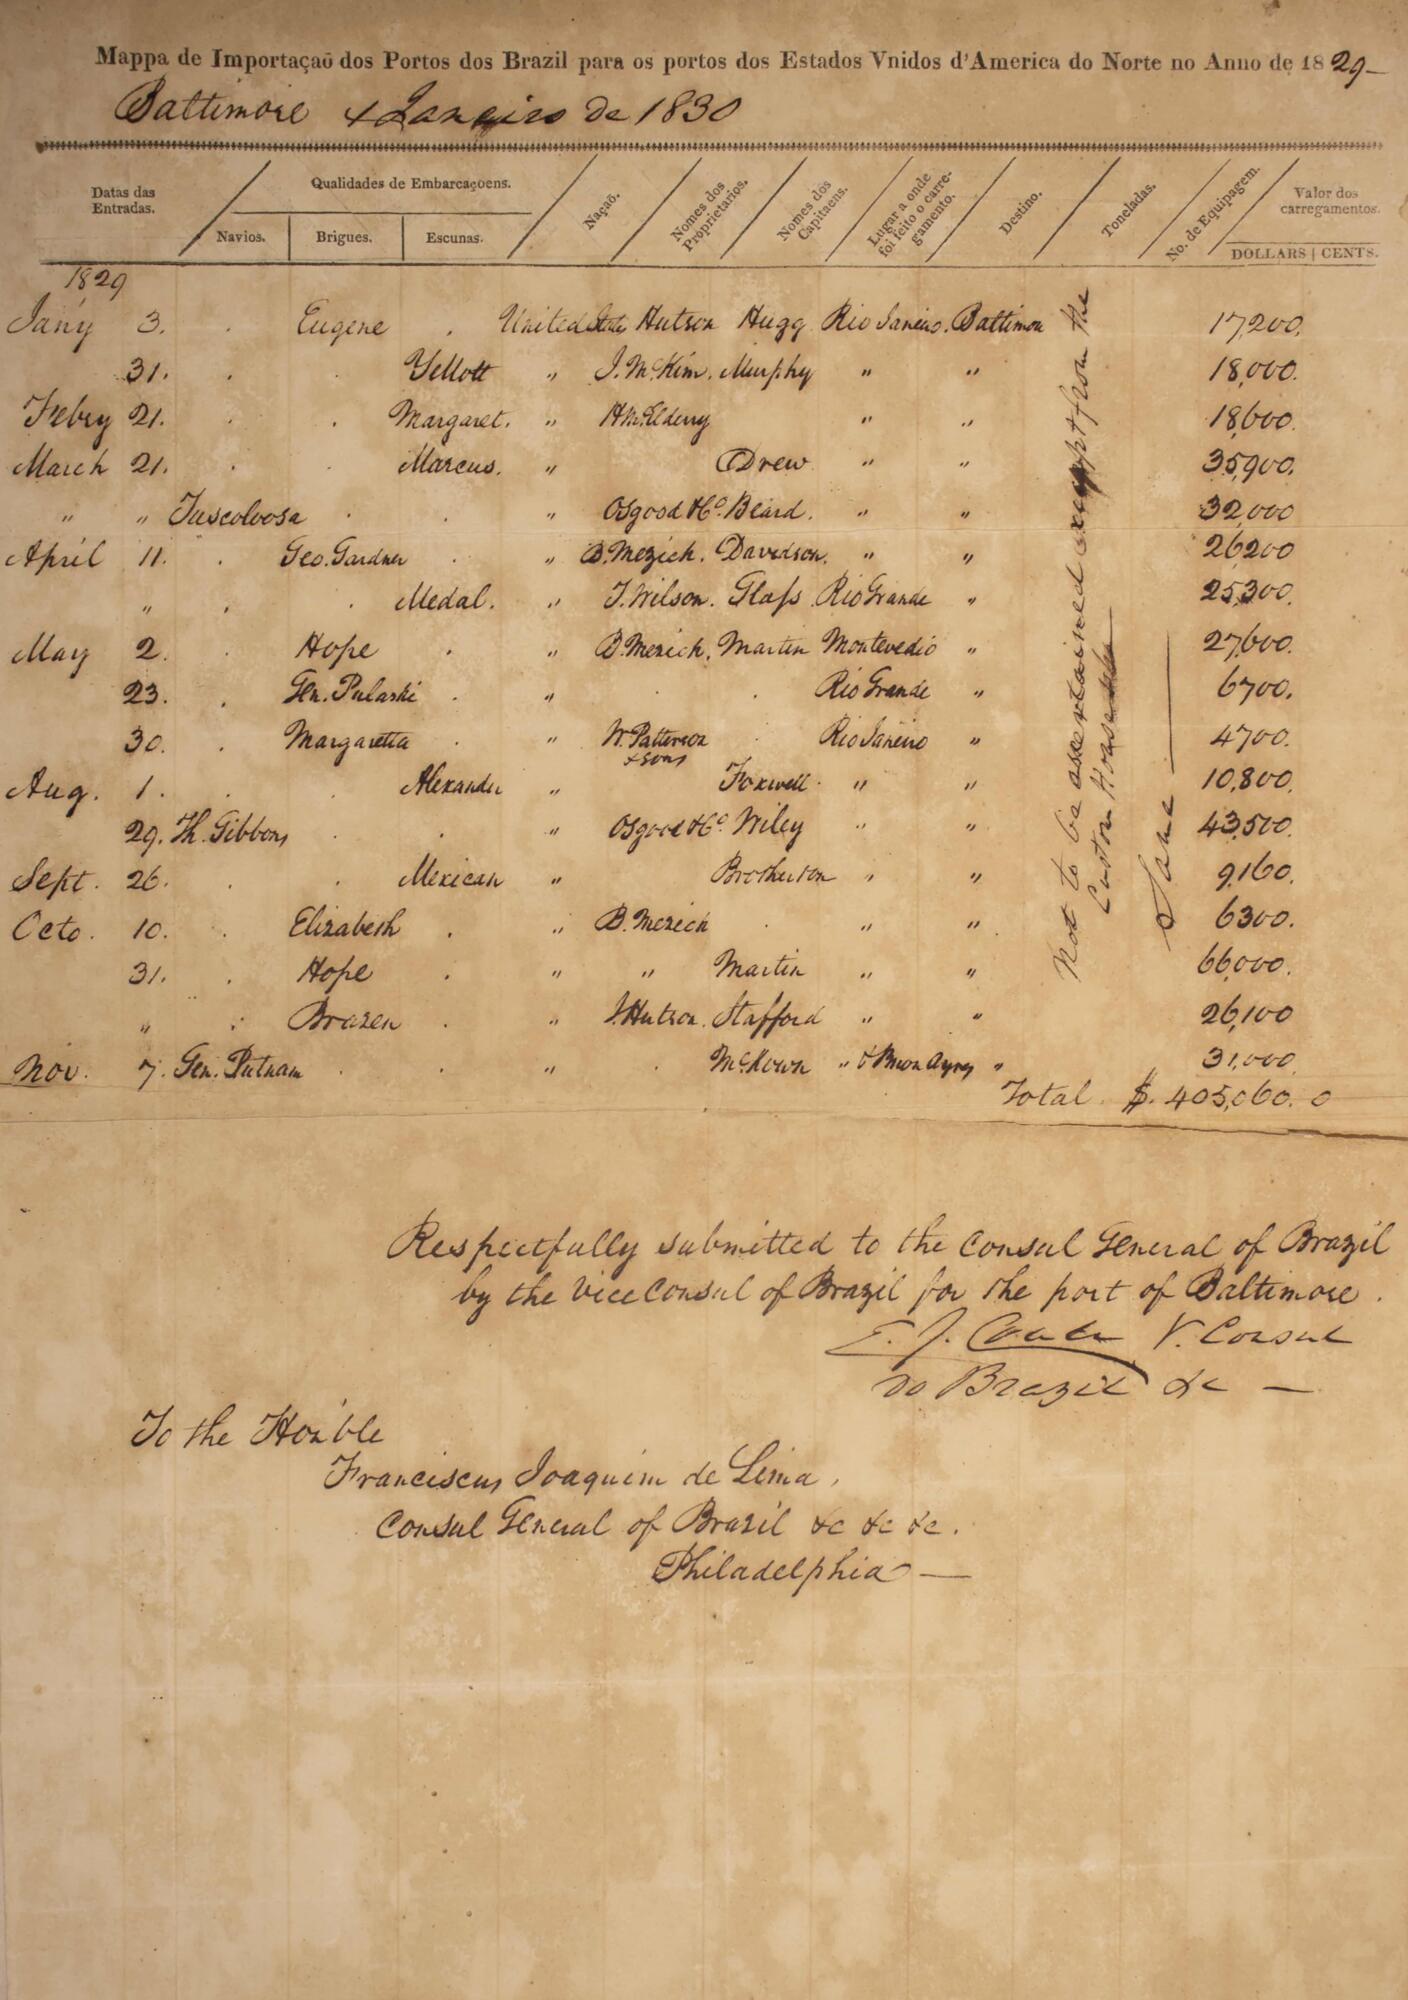 Mappa de Importaçaõ dos Portos dos Brazil para os portos dos Estados Vnidos d'America do Norte no Anno de 1829
Baltimore 4 Janeiro de 1830
Datas das Entradas. Qualidades de Embarcaçoens. Naçaõ. Nomes dos Proprietarios. Nomes dos Capitaens. Lugar a onde foi feito o carregamento. Destino. Toneladas. No. de Equipagem. Valor dos carregamentos.
Navios. Brigues. Escunas. DOLLARS CENTS.
1829
Jany 3. Eugene United States Hutson Hugg Rio Janeiro. Baltimore 17,200.
31. Yellott " J. McKim. Murphy " " 18,000.
Febry 21. Margaret. " H McElderry " " 18,600.
March 21. Marcus. " Drew " " 35,900.
" " Tuscoloosa " Osgood & Co. Beard. " " 32,000
April 11. Geo. Gardner " B. Mezick. Davidson. " " 26,200
" Medal. " T. Wilson. Glass Rio Grande " 25,300.
May 2. Hope " B. Mezick. Martin Montevedio " 27,600.
23. Gen. Pulaski " Rio Grande " 6700.
30. Margaretta " W. Patterson & sons Rio Janeiro " 4700.
Aug. 1. Alexander " Foxwell " " 10,800.
29. Th. Gibbons " Osgood & Co. Wiley " " 43,500.
Sept. 26. Mexican " Brotherton " " 9,160.
Octo. 10. Elizabeth " B. Mezick " " 6300.
31. Hope " " Martin " " 66,000.
" Brazen " J. Hutson. Stafford " " 26,100
Nov. 7. Gen. Putnam " McKown " & Buon Ayres " 31,000
Total $. 405,060. 0
Not to be assertained except from the
Custom House
Same
Respectfully submitted to the Consul General of Brazil
by the Vice Consul of Brazil for the port of Baltimore.
E. J. V. Consul
do Brazil &c
To the Honble
Franciscus Joaquim de Lima,
Consul General of Brazil &c &c &c.
Philadelphia